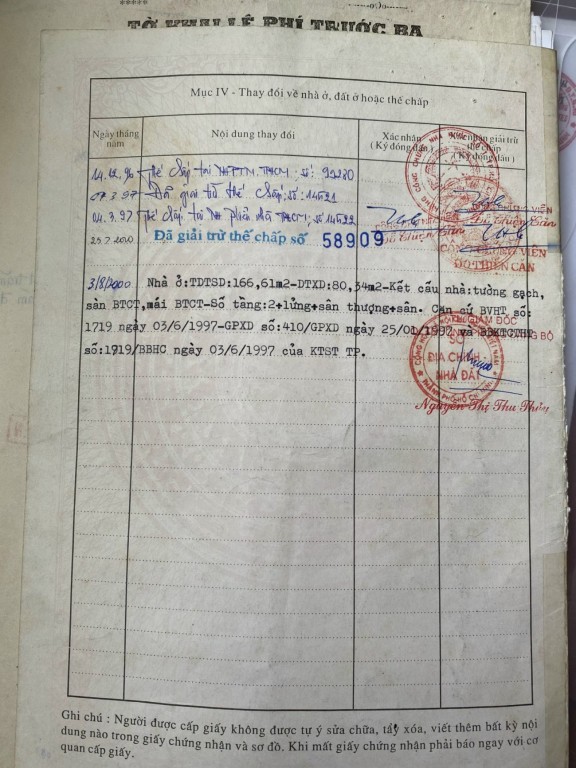 TỜ KHAI LỆ PHÍ TRƯỚC BẠ
Mục IV - Thay đổi về nhà ở, đất ở hoặc thế chấp
Ngày tháng năm
Nội dung thay đổi
Xác nhận
( Ký đóng dấu )
Xác nhận giải trừ
thế chấp
( Ký đóng dấu )
14.12.96 Thế chấp tại
07.3.97 Đã giải trừ thế chấp; số: 14521
04.3.97 Thế chấp tại
25.7.2000 Đã giải trừ thế chấp số 58909
CÔNG CHỨNG VIÊN
ĐỖ THIỆN CĂN
3/8/2000 Nhà ở:TDTSD:166,61m2-DTXD:80,34m2-Kết cấu nhà:tường gạch,
sàn BTCT,mái BTCT-Số tầng:2+lửng+sân thượng+sân. Căn cứ BVHT số:
1719 ngày 03/6/1997-GPXD số:410/GPXD ngày 25/01/1997 và
số:1719/BBHC ngày 03/6/1997 của KTST TP.
GIÁM ĐỐC
SỞ
ĐỊA CHÍNH
NHÀ ĐẤT
Nguyễn Thị Thu Thủy
Ghi chú : Người được cấp giấy không được tự ý sửa chữa, tẩy xóa, viết thêm bất kỳ nội
dung nào trong giấy chứng nhận và sơ đồ. Khi mất giấy chứng nhận phải báo ngay với cơ
quan cấp giấy.